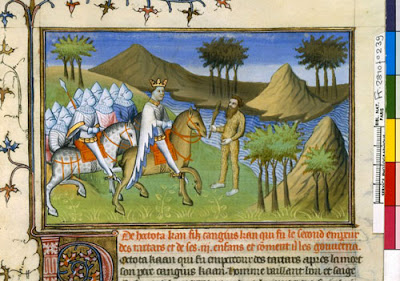 De hetota kan filz cangius kan qui fu le second empeur
des tartars et de ses .iij. enfans et coment il les gouverna.
ctota kaan qui fu empereour des tartars apres la mort
son pere cangius kaan. homme vaillant bon et saige
BIBL. NAT. PARIS
Fr. 2810 fo 239